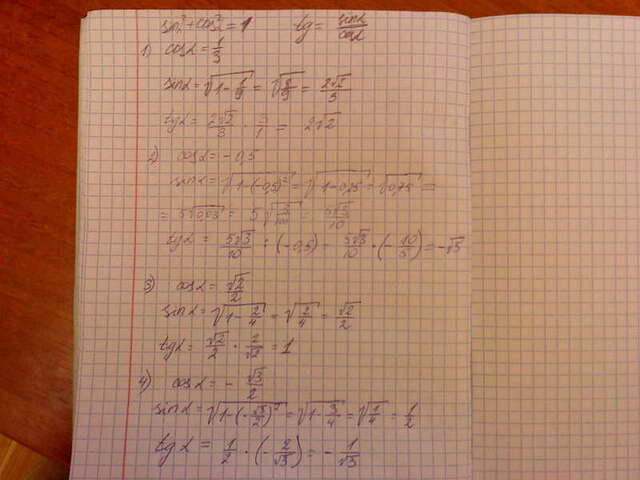 sin²+cos²=1 tg = sinα/cosα
1) cosα = 1/3
sinα = √(1-1/9) = √(8/9) = 2√2/3
tgα = 2√2/3 · 3/1 = 2√2
2) cosα = -0,5
sinα = √(1-(-0,5)²) = √(1-0,25) = √0,75 =
= 5√0,03 = 5√(3/100) = 5√3/10
tgα = 5√3/10 : (-0,5) = 5√3/10 · (-10/5) = -√3
3) cosα = √2/2
sinα = √(1-2/4) = √(2/4) = √2/2
tgα = √2/2 · 2/√2 = 1
4) cosα = - √3/2
sinα = √(1-(-√3/2)²) = √(1-3/4) = √(1/4) = 1/2
tgα = 1/2 · (-2/√3) = - 1/√3